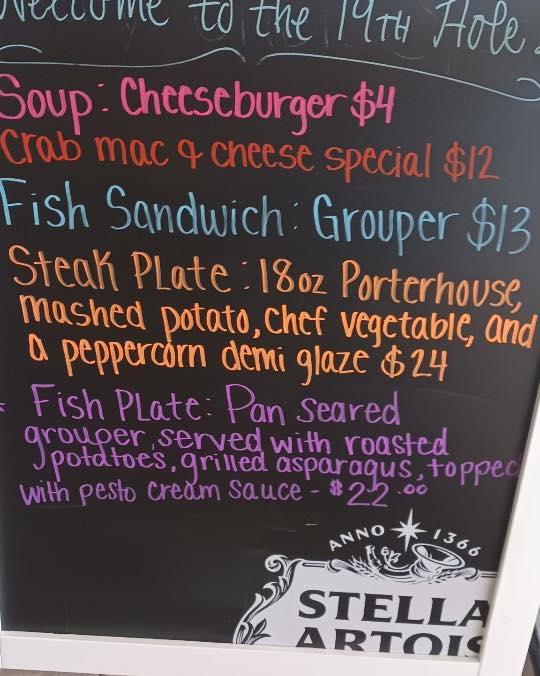 Welcome to the 19TH Hole
Soup: Cheeseburger $4
Crab mac & cheese special $12
Fish Sandwich: Grouper $13
Steak PLate: 18oz Porterhouse,
mashed potato, chef vegetable, and
a peppercorn demi glaze $24
Fish PLate: Pan seared
grouper, served with roasted
potatoes, grilled asparagus, topped
with pesto cream sauce - $22.00
ANNO 1366
STELLA
ARTOIS